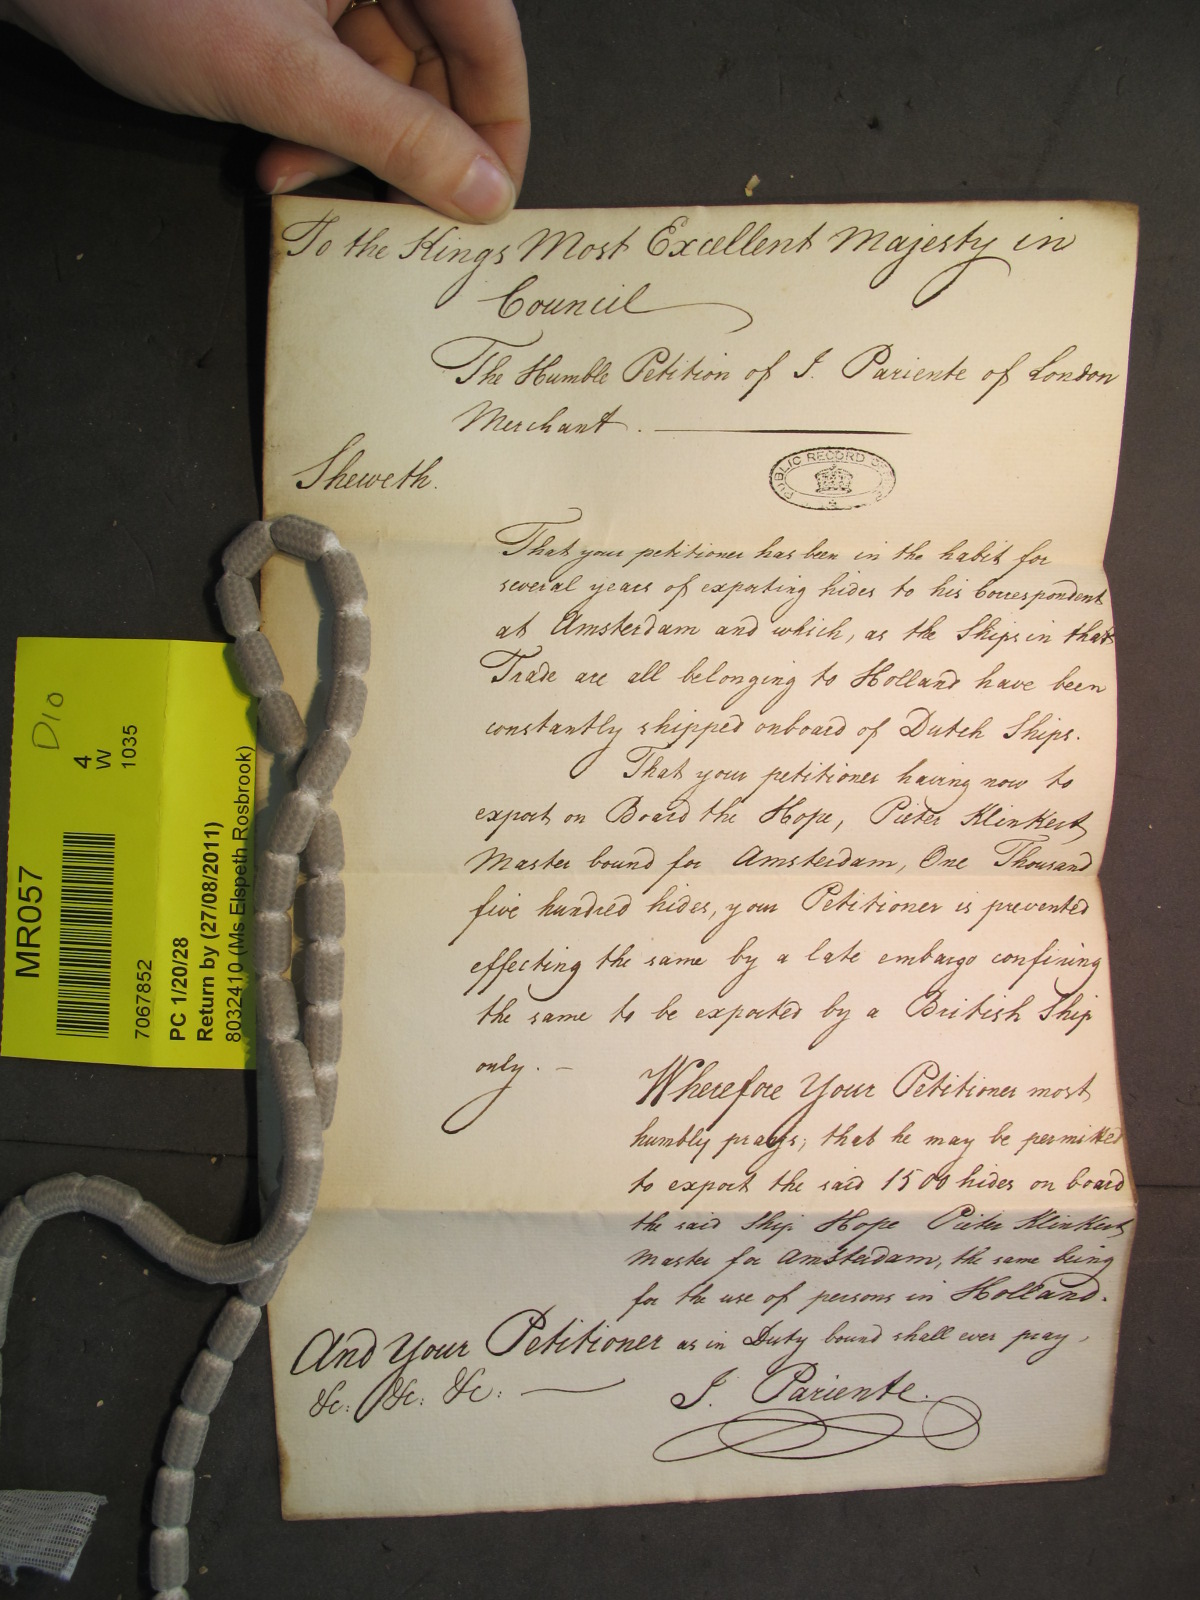 To the Kings Most Excellent Majesty in
Council
The Humble Petition of J. Pariente of London
Merchant.
PUBLIC RECORD OFFICE
Sheweth.
That your petitioner has been in the habit for
several years of exporting hides to his Correspondent
at Amsterdam and which, as the Ships in that
Trade are all belonging to Holland have been
constantly shipped onboard of Dutch Ships.
That your petitioner having now to
export on Board the Hope, Pieter Klinkert
Master bound for Amsterdam, One Thousand
five hundred hides, your Petitioner is prevented
effecting the same by a late embargo confining
the same to be exported by a British Ship
only. -
Wherefore Your Petitioner most
humbly prays; that he may be permitted
to export the said 1500 hides on board
the said Ship Hope Pieter Klinkert
Master for Amsterdam, the same being
for the use of persons in Holland.
And Your Petitioner as in Duty bound shall ever pray,
&c: &c: &c:
J. Pariente.
MR057
D10
4
W
1035
7067852
PC 1/20/28
Return by (27/08/2011)
8032410 (Ms Elspeth Rosbrook)